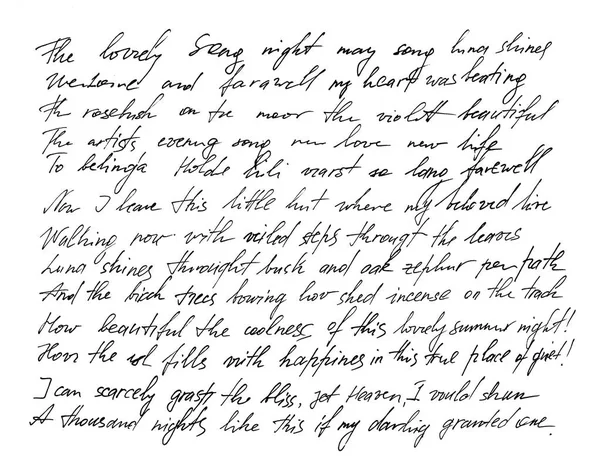 The lovely Song night may song luna shines
Welcome and farawell my heart was beating
Th rosebush on the moor the violett beautiful
The artists evening song new love new life
To belinda Holde Lili warst so long farewell
Now I leave this little hut where my beloved live
Walking now with veiled steps througt the leaves
Luna shines throught bush and oak zephur per path
And the birch trees bowing how shed incense on the track
How beautiful the coolness of this lovely summer night!
How the sol fills with happines in this true place of quiet!
I can scarcely grasp the bliss, jet Heaven, I would shun
A thousand nights like this if my darling granted one.